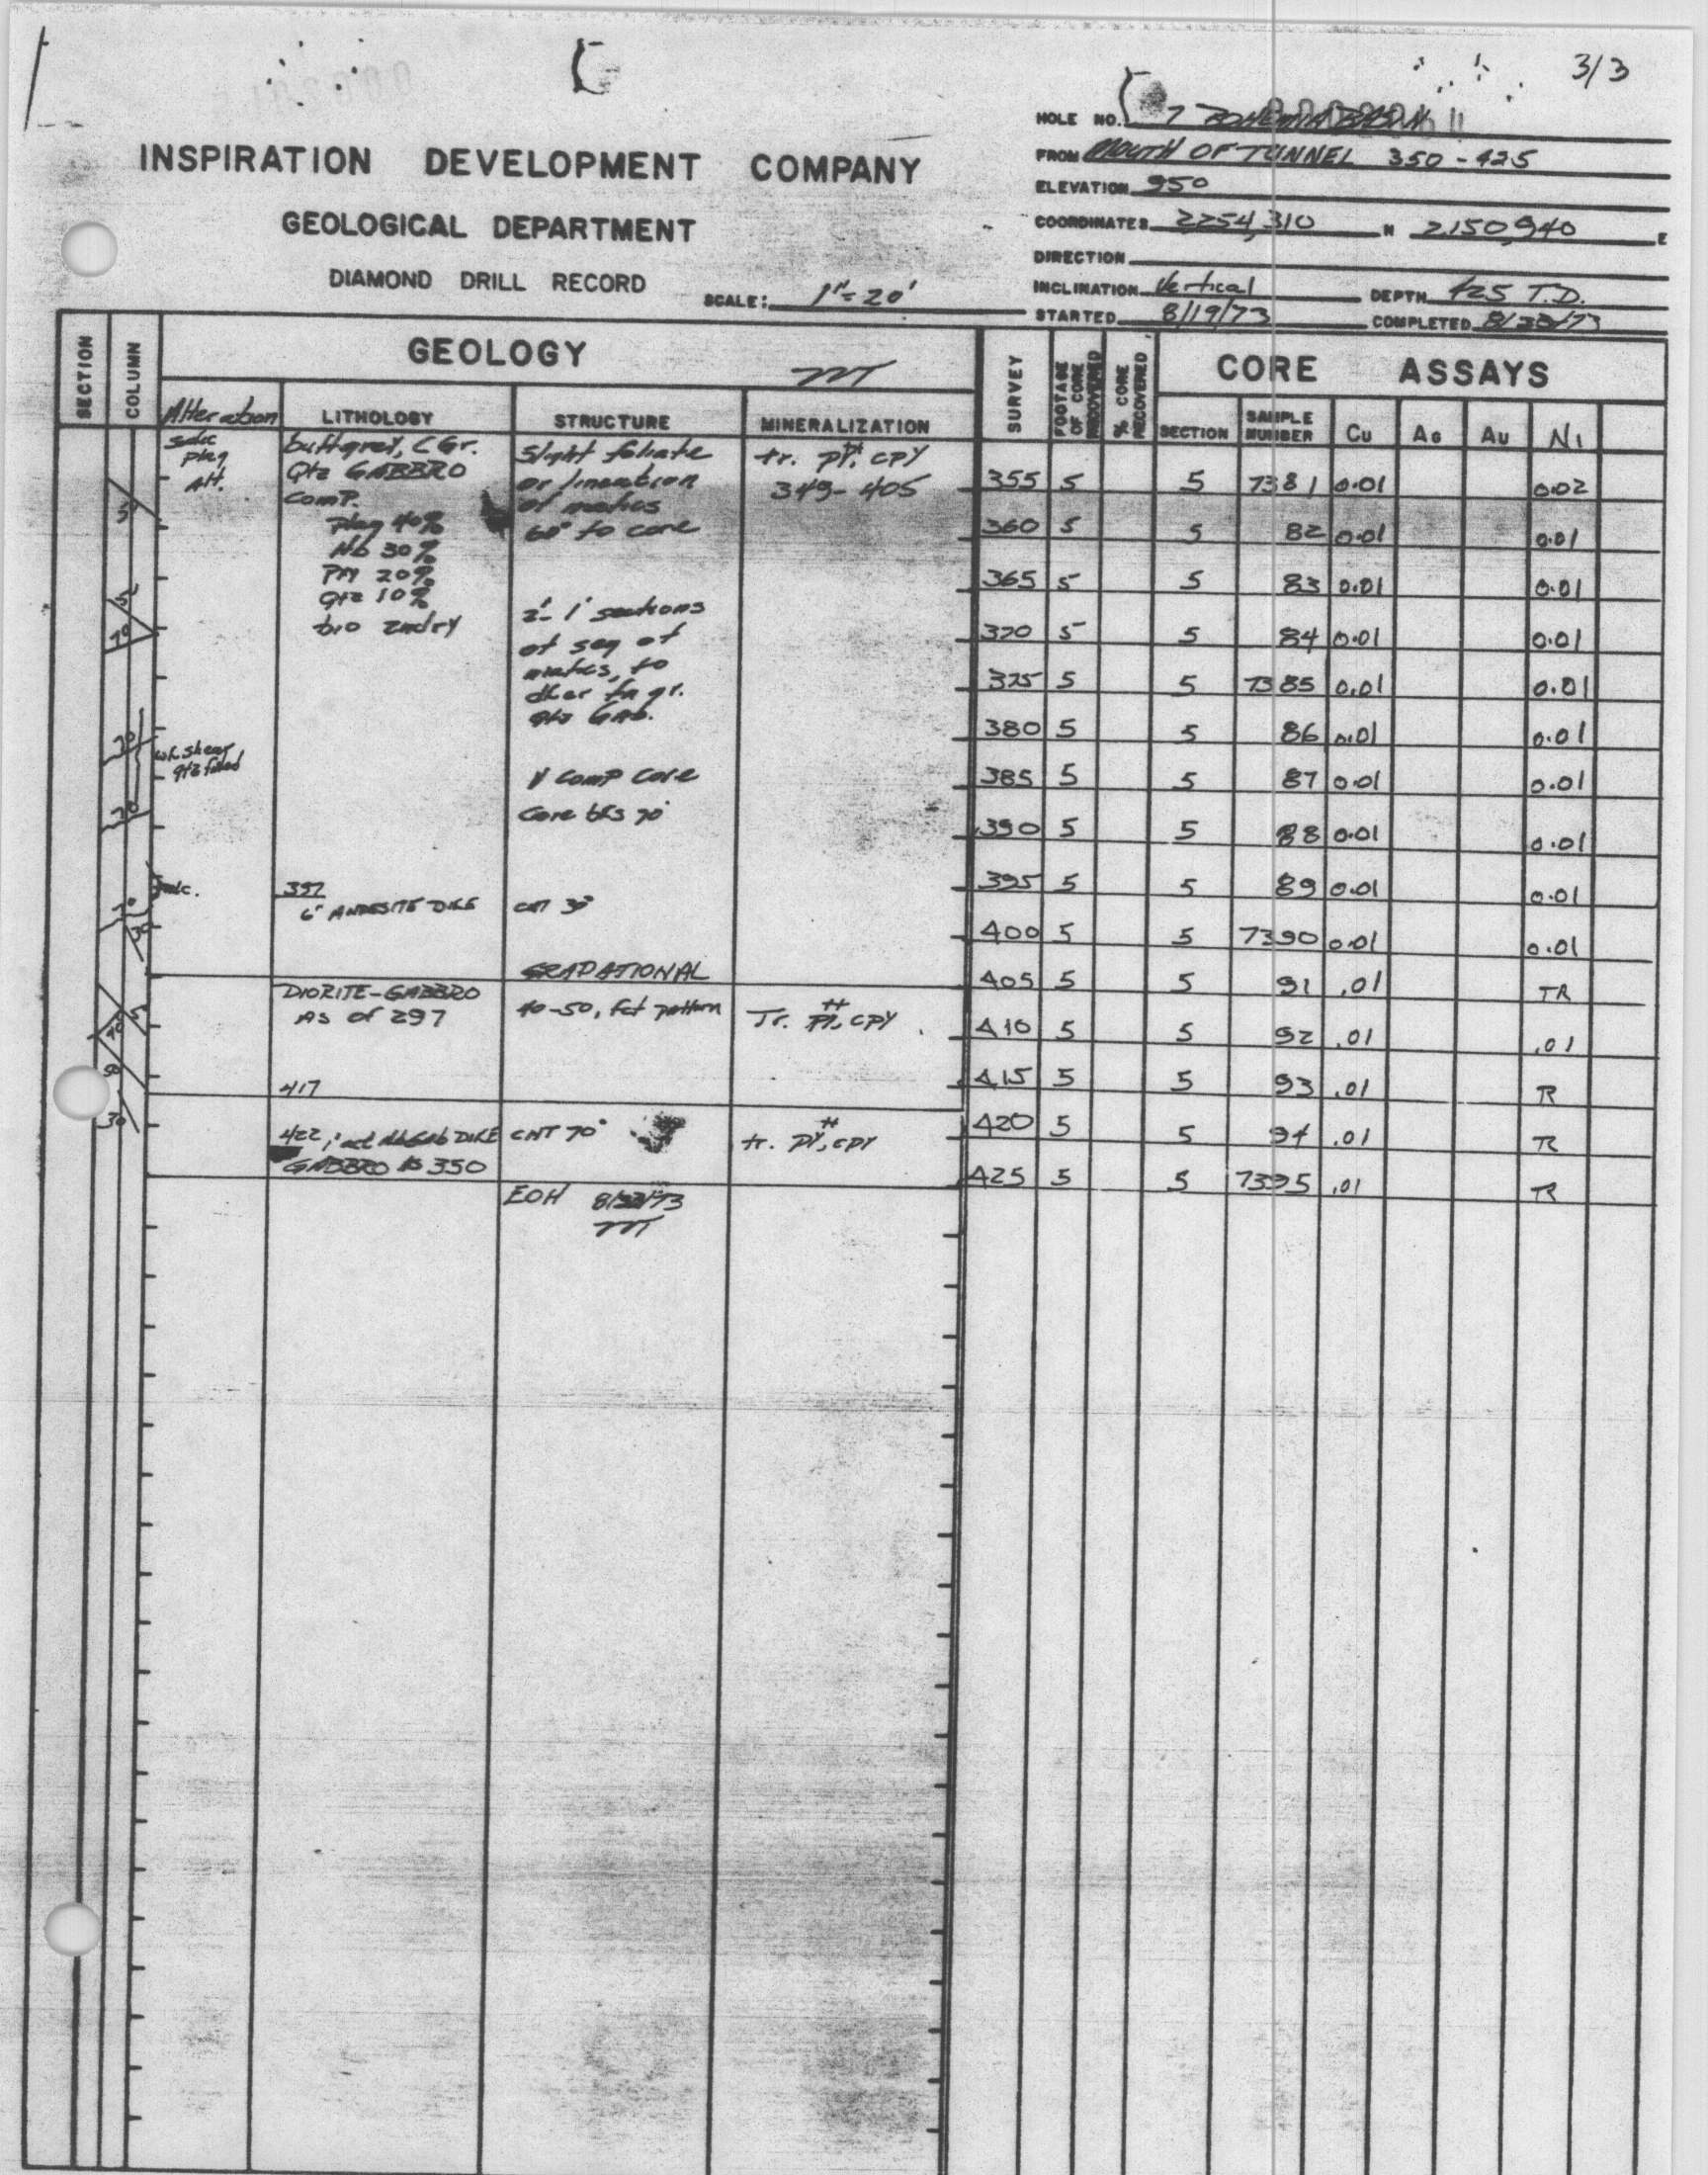 3/3
HOLE NO. 7 BOHEMIA BASIN
INSPIRATION DEVELOPMENT COMPANY
FROM MOUTH OF TUNNEL 350-425
ELEVATION 950
GEOLOGICAL DEPARTMENT
COORDINATES 2254,310 N 2150,940 E
DIRECTION
DIAMOND DRILL RECORD
SCALE: 1"=20'
INCLINATION Vertical DEPTH 425 T.D.
STARTED 8/19/73 COMPLETED
SECTION COLUMN GEOLOGY SURVEY FOOTAGE OF CORE RECOVERED % CORE RECOVERED CORE ASSAYS
Alteration LITHOLOGY STRUCTURE MINERALIZATION SECTION SAMPLE NUMBER Cu AG AU Ni
plag
Alt.
buffgrey, C Gr.
Qtz GABBRO
Comp.
Plag 40%
Hb 30%
PYX 20%
Qtz 10%
bio 2ndry
Slight foliate
or lineation
of mafics
60° to core
2'- 1' sections
of seg of
mafics, to
other fn gr.
qtz GAB.
V Comp Core
Core bks 70°
tr. py, cpy
349-405
wk. shear
qtz filled
397
6" ANDESITE DIKE CNT 30°
GRADATIONAL
DIORITE-GABBRO
AS of 297
40-50, fct pattern
Tr. py, cpy
417
422, DIKE CNT 70° tr. py, cpy
GABBRO AS 350
EOH
355 5 5 7381 0.01 0.02
360 5 5 82 0.01 0.01
365 5 5 83 0.01 0.01
370 5 5 84 0.01 0.01
375 5 5 7385 0.01 0.01
380 5 5 86 0.01 0.01
385 5 5 87 0.01 0.01
390 5 5 88 0.01 0.01
395 5 5 89 0.01 0.01
400 5 5 7390 0.01 0.01
405 5 5 91 .01 TR
410 5 5 92 .01 .01
415 5 5 93 .01 TR
420 5 5 94 .01 TR
425 5 5 7395 .01 TR